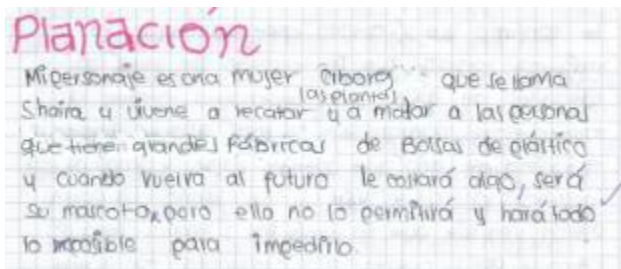 Planación
Mi personaje es una mujer ciborg que se llama
(las plantas)
Shaira y vivene a recatar y a matar a las personas
que tienen grandes fábricas de Bolsas de plástico
y cuando vuelva al futuro le costará algo, será
su mascota, pero ella no lo permitirá y hará todo
lo imposible para impedirlo.